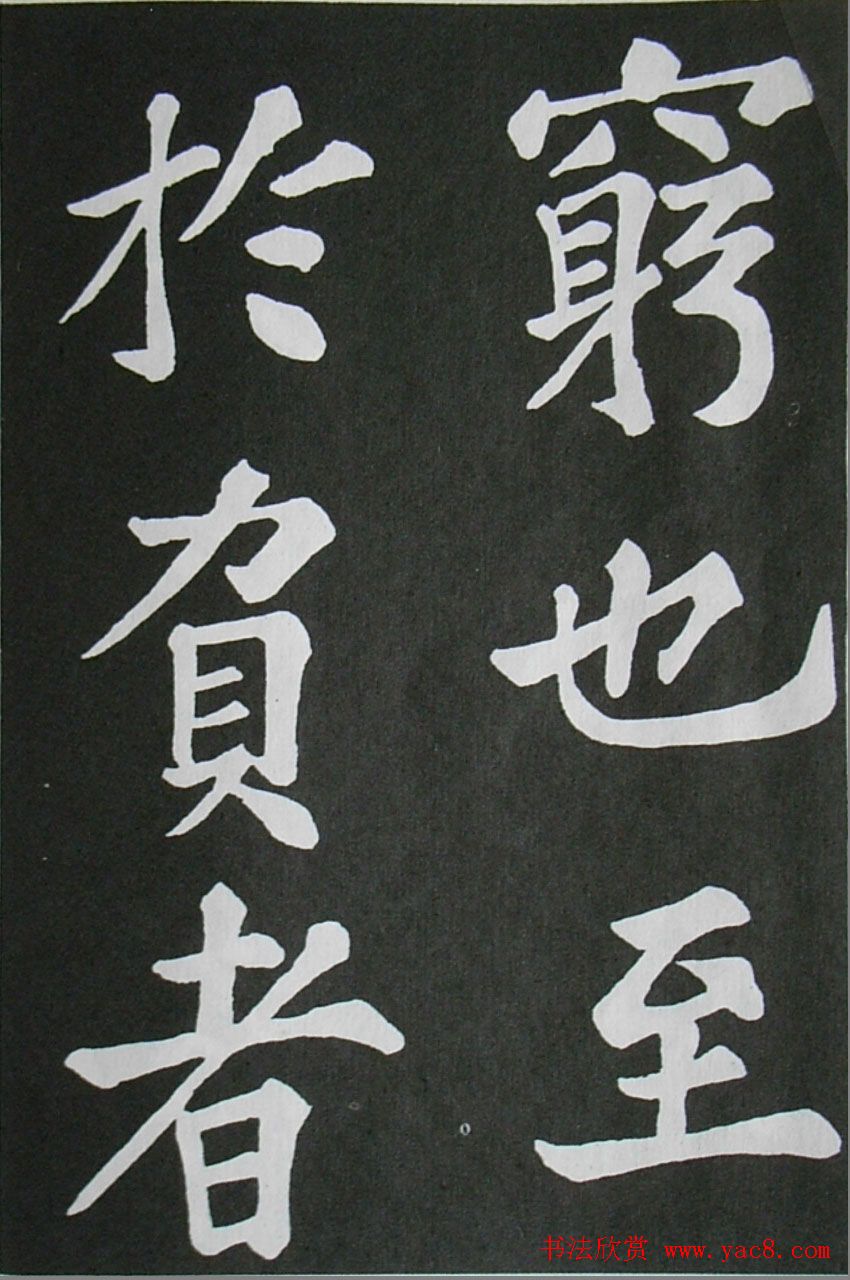 窮也至
於負者
书法欣赏 www.yac8.com